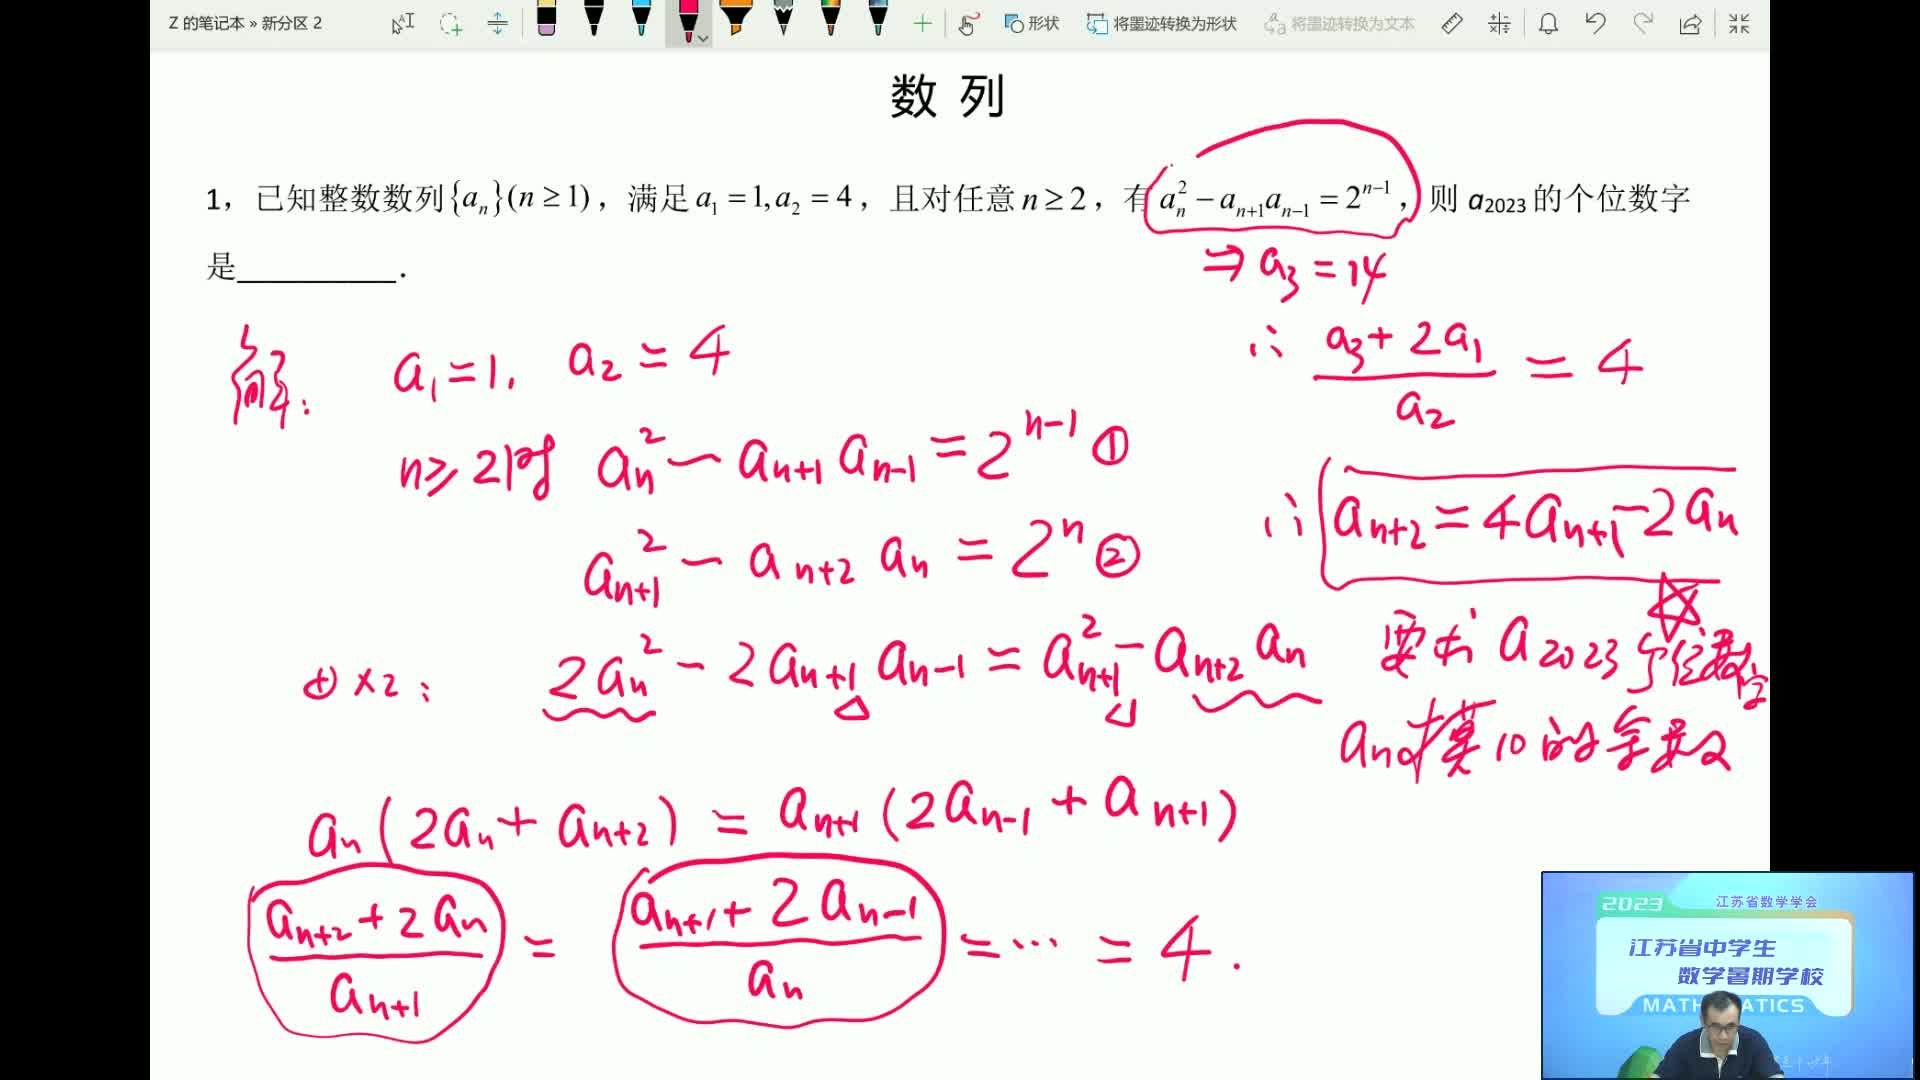 Z 的笔记本 » 新分区 2
形状 将墨迹转换为形状 将墨迹转换为文本
数 列
1，已知整数数列{aₙ}(n ≥ 1)，满足 a₁ = 1, a₂ = 4，且对任意 n ≥ 2，有 aₙ² − aₙ₊₁aₙ₋₁ = 2ⁿ⁻¹，则 a₂₀₂₃ 的个位数字
是__________．
⇒ a₃ = 14
解: a₁ = 1, a₂ = 4
∴ (a₃ + 2a₁)/a₂ = 4
n ≥ 2时 aₙ² − aₙ₊₁ aₙ₋₁ = 2ⁿ⁻¹ ①
aₙ₊₁² − aₙ₊₂ aₙ = 2ⁿ ②
∴ aₙ₊₂ = 4aₙ₊₁ − 2aₙ
①×2: 2aₙ² − 2aₙ₊₁ aₙ₋₁ = aₙ₊₁² − aₙ₊₂ aₙ
要求 a₂₀₂₃ 个位数字
aₙ模10的余数
aₙ(2aₙ + aₙ₊₂) = aₙ₊₁(2aₙ₋₁ + aₙ₊₁)
(aₙ₊₂ + 2aₙ)/aₙ₊₁ = (aₙ₊₁ + 2aₙ₋₁)/aₙ = ⋯ = 4.
2023 江苏省数学学会
江苏省中学生
数学暑期学校